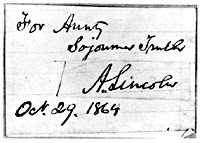 For Aunty
Sojourner Truth
A. Lincoln
Oct. 29. 1864